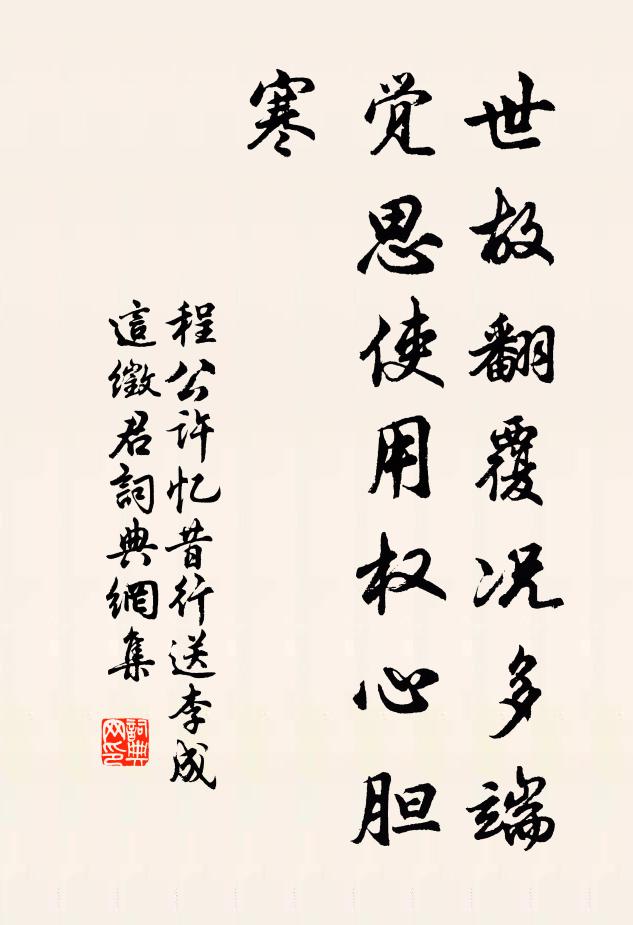 世故翻覆况多端
觉思使用权心胆
寒
程公许忆昔行送李成
這徵君詞典網集
詞典网印